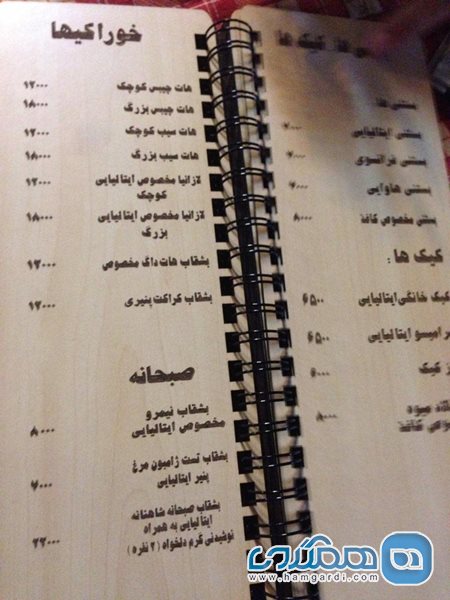 خوراکیها
هات چیپس کوچک ۱۲۰۰۰
هات چیپس بزرگ ۱۸۰۰۰
هات سیب کوچک ۱۲۰۰۰
هات سیب بزرگ ۱۸۰۰۰
لازانیا مخصوص ایتالیایی ۱۲۰۰۰
کوچک
لازانیا مخصوص ایتالیایی ۱۸۰۰۰
بزرگ
بشقاب هات داگ مخصوص ۱۲۰۰۰
بشقاب کراکت پنیری ۱۲۰۰۰
صبحانه
بشقاب نیمرو
مخصوص ایتالیایی ۸۰۰۰
بشقاب تست ژامبون مرغ
پنیر ایتالیایی ۶۰۰۰
بشقاب صبحانه شاهانه
ایتالیایی به همراه
نوشیدنی گرم دلخواه (۲ نفره) ۲۲۰۰۰
کیک ها
بستنی ها
بستنی ایتالیایی
بستنی فرانسوی
بستنی هاوایی
بستنی مخصوص کافه ۸۰۰۰
کیک ها :
کیک خانگی ایتالیایی ۶۵۰۰
ایتالیایی ۶۵۰۰
کیک
میوه ۸۰۰۰
کافه
همگردی
www.hamgardi.com